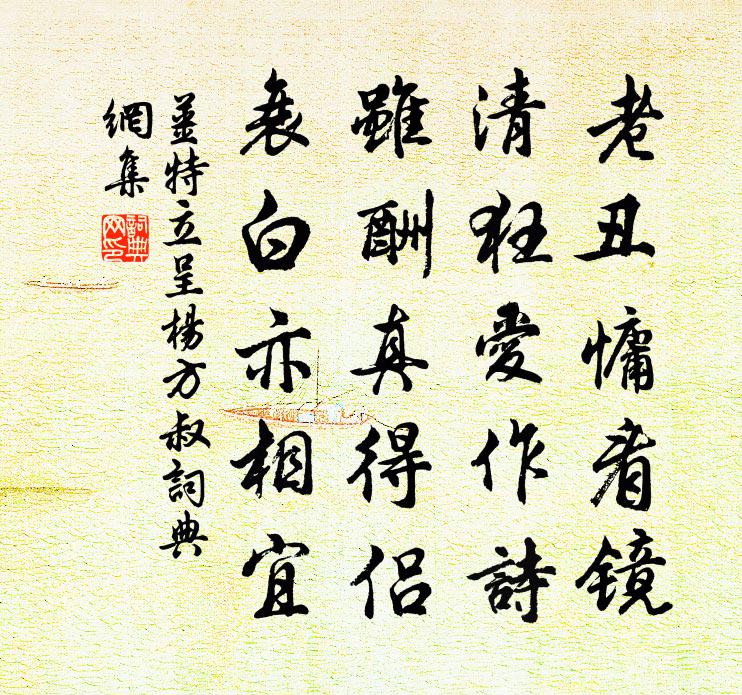 老丑慵看镜
清狂愛作詩
雖酬真得侣
衰白亦相宜
姜特立呈楊方叔詞典
網集
詞典網印